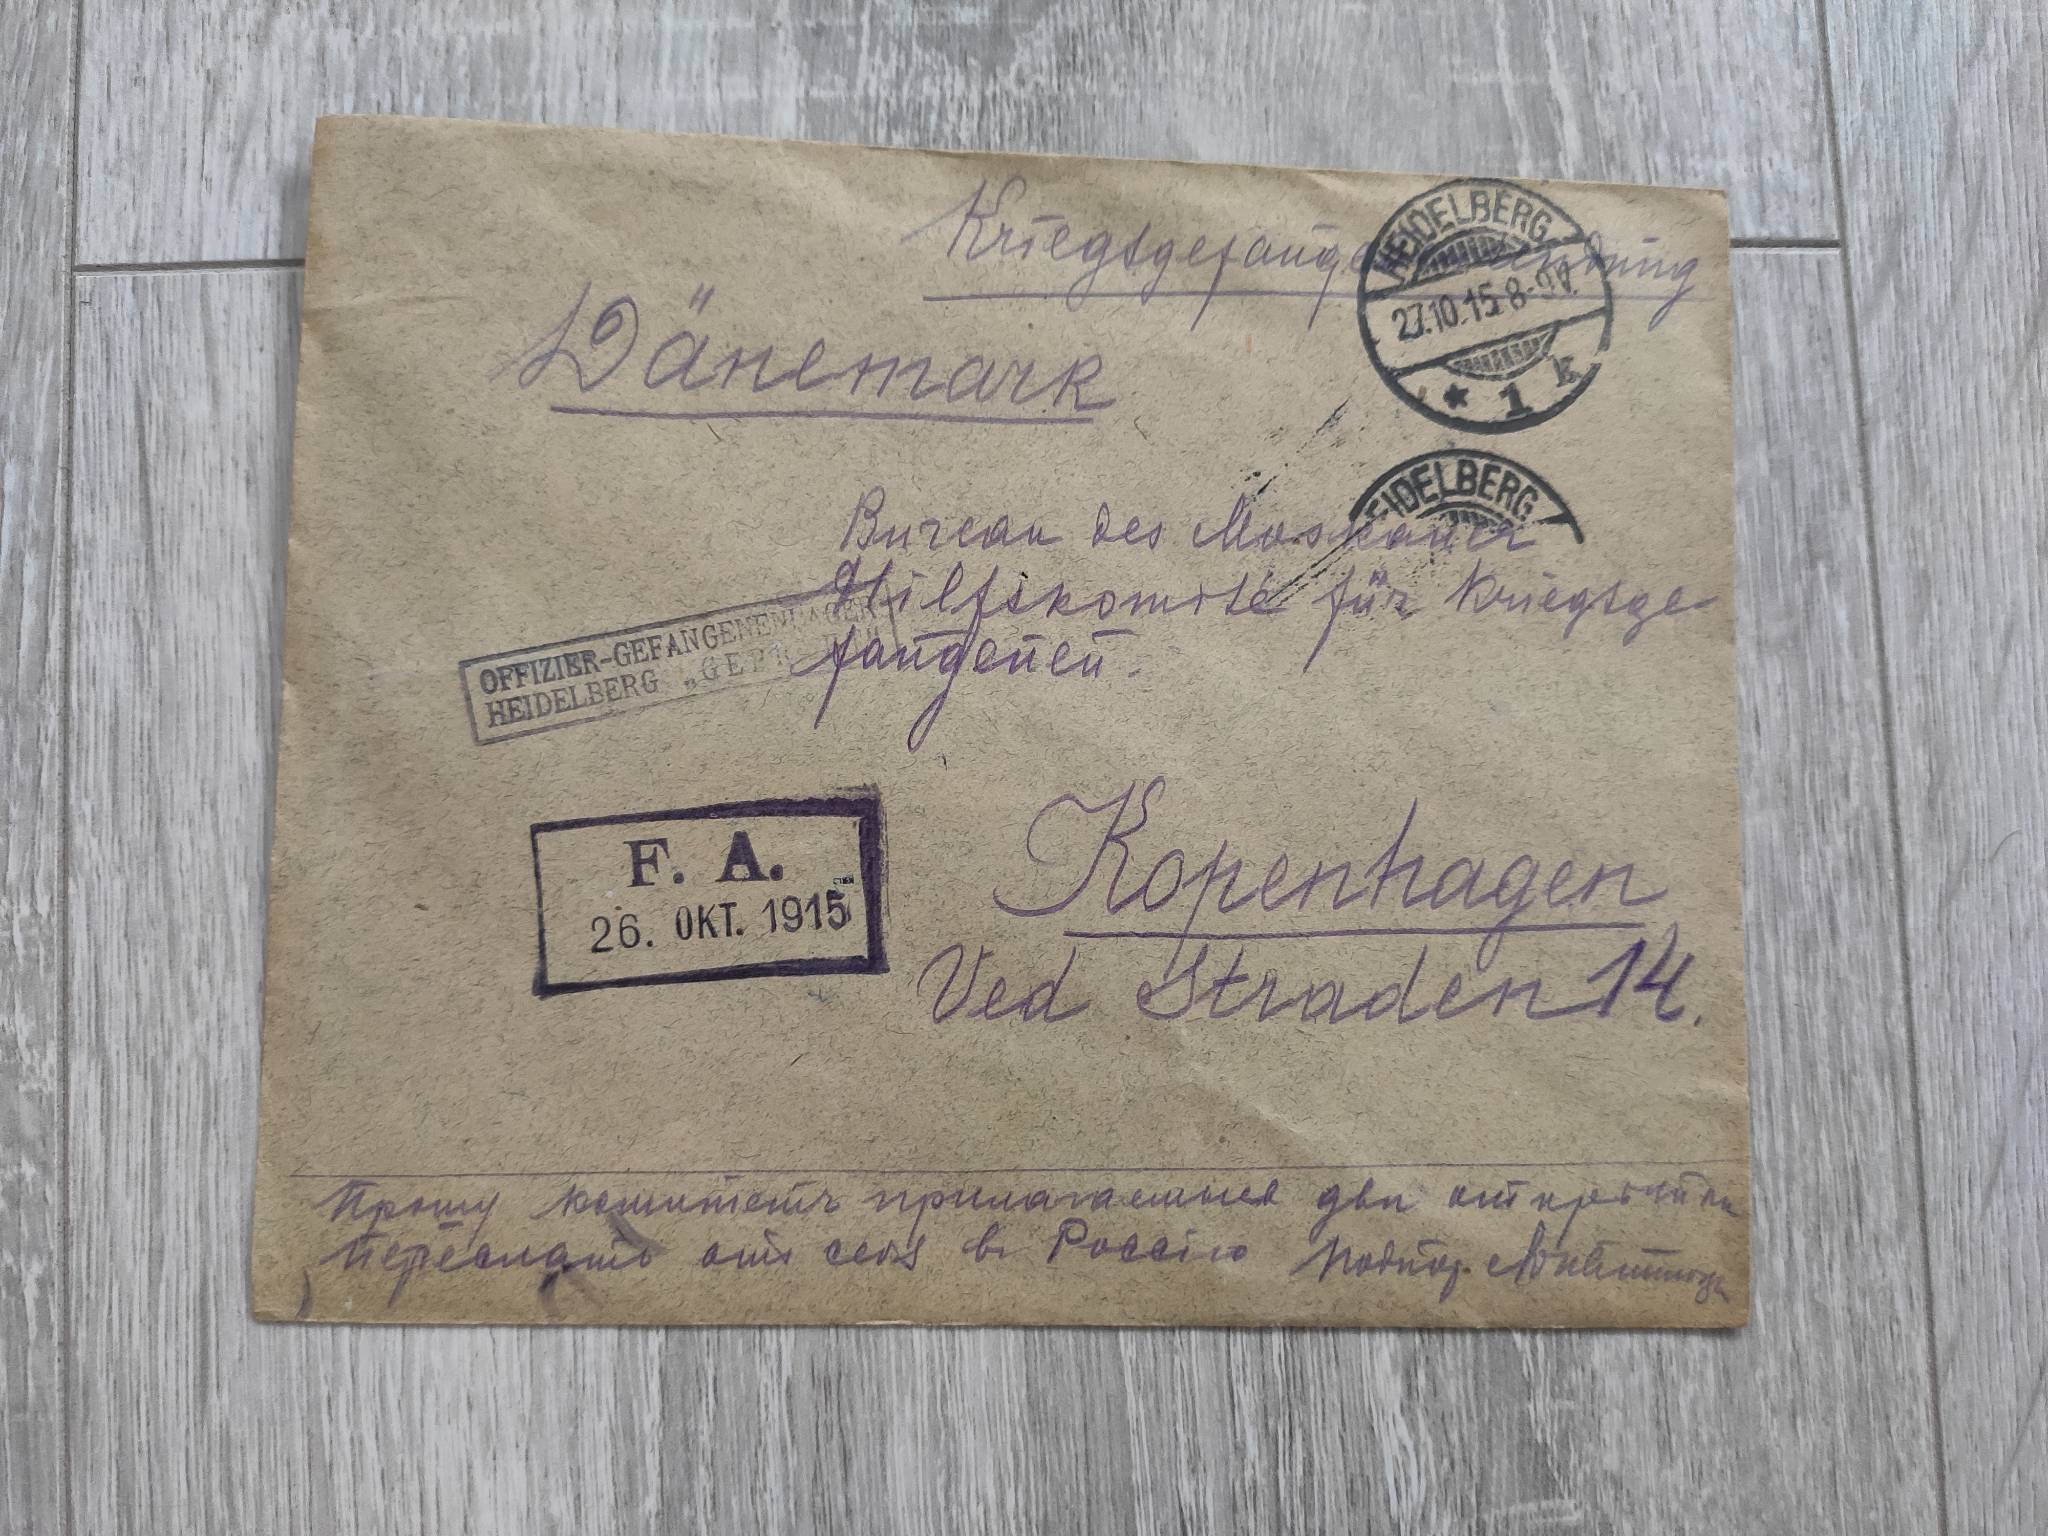 Kriegsgefangensendung
HEIDELBERG
27.10.15. 8-9V.
* 1 k
Dänemark
EIDELBERG
Bureau des Moskauer
Hilfskomite für Kriegsge-
fangenen.
OFFIZIER-GEFANGENENLAGER
HEIDELBERG
F. A.
26. OKT. 1915
Kopenhagen
Ved Straden 14.
Прошу комитетъ прилагаемыя две открытки
переслать отъ себя въ Россію Подпор.